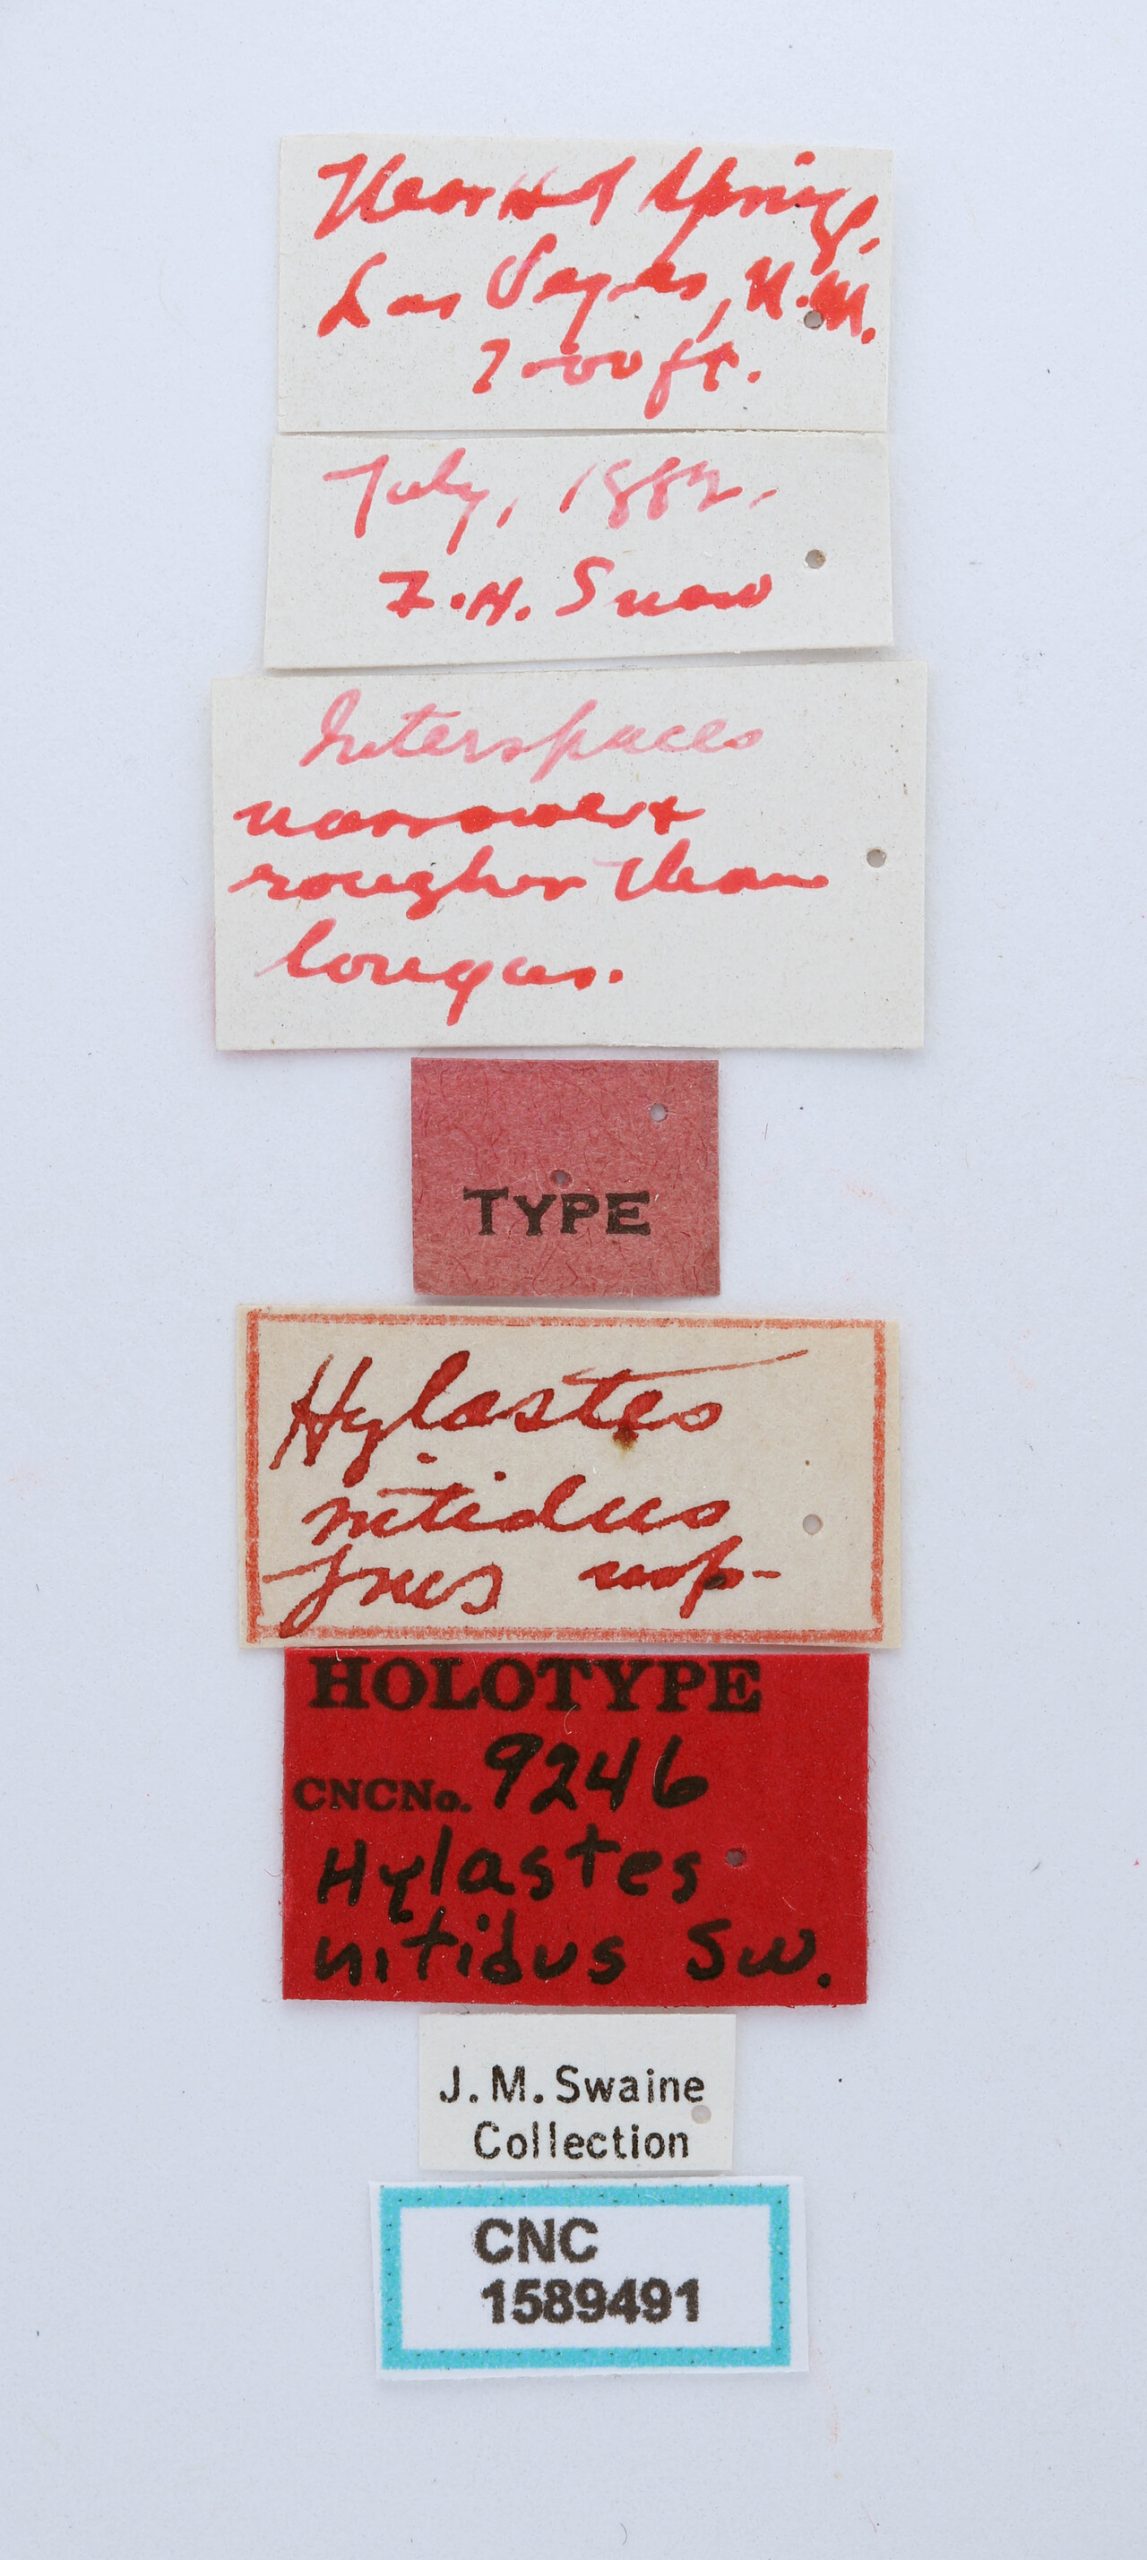 Near Hot Springs,
Las Vegas, N.M.
7000 ft.
July, 1882.
F.H. Snow
Interspaces
narrower &
rougher than
longus.
TYPE
Hylastes
nitidus
nsp-
HOLOTYPE
CNCNo. 9246
Hylastes
nitidus Sw.
J. M. Swaine
Collection
CNC
1589491